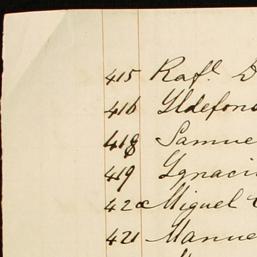 415 Rafl D
416 Yldefon
418 Samue
419 Ygnaci
420 Miguel
421 Manue